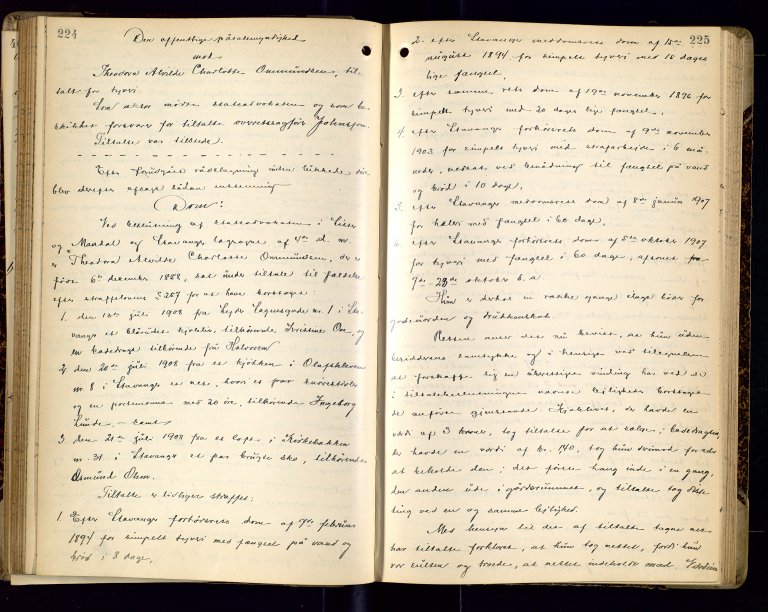 224
Den offentlige påtalemyndighed
mod
Theodora Alvilde Charlotte Ommundsen, til-
talt for tyveri.
Som aktor mødte statsadvokaten og som be-
skikket forsvarer for tiltalte overretssagfører Johnsson.
Tiltalte var tilstede.
Efter forudgået rådslagning inden lukkede døre
blev derefter afsagt sådan enstemmig
Dom:
Ved beslutning af statsadvokaten i Lister
og Mandal og Stavanger lagsogne af 4de d. m. er
Theodora Alvilde Charlotte Ommundsen, der er
født 6te december 1888, sat under tiltale til fældelse
efter straffelovens § 257 for at have borttaget:
1. den 13de juli 1908 fra Nr. 1 i Sta-
vanger et kjoleliv, tilhørende Kristine Oie, og
en badedragt tilhørende frk Halvorsen
2. den 20de juli 1908 fra et kjøkken i Olafskleven
nr 8 i Stavanger et net, hvori et par snørestøvler
og en portemonnæ med 20 øre, tilhørende Ingeborg
Lunde, – samt
3. den 21de juli 1908 fra et loft i Kirkebakken
nr. 31 i Stavanger et par brugte sko, tilhørende
Osmund Olsen.
Tiltalte er tidligere straffet:
1. Efter Stavanger forhørsrets dom af 7de februar
1894 for simpelt tyveri med fængsel på vand og
brød i 8 dage,
225
2. efter Stavanger meddomsrets dom af 15de
august 1894 for simpelt tyveri med 15 dages
lige fængsel,
3. efter samme rets dom af 19de november 1896 for
simpelt tyveri med 20 dages lige fængsel,
4. efter Stavanger forhørsrets dom af 9de november
1903 for simpelt tyveri med strafarbeide i 6 må-
neder, nedsat ved benådning til fængsel på vand
og brød i 10 dage,
5. efter Stavanger meddomsrets dom af 8de januar 1907
for hæleri med fængsel i 60 dage,
6. efter Stavanger forhørsrets dom af 5te oktober 1907
for tyveri med fængsel i 60 dage, afsonet
23de oktober s. a.
Hun er derhos en række gange ilagt bøder for
gadeuorden og drukkenskab.
Retten anser det nu bevist, at hun uden
besidderens samtykke og i hensigt ved tilegnelsen
at forskaffe sig en uberettiget vinding har ved de
i tiltalebeslutningen nævnte leiligheder borttaget
de anførte gjenstande. Kjolelivet, der havde en
værdi af 3 kroner, tog tiltalte for at sælge; badedragten,
der havde en værdi af kr. 1,40, tog hun derimod for selv
at beholde den; det første hang inde i en gang,
den anden ude i gårdsrummet, og tiltalte tog dette
ting ved en og samme leilighed.
Med hensyn til det af tiltalte tagne net
har tiltalte forklaret, at hun tog nettet, fordi hun
var sulten og troede, at nettet indeholdt mad. Værdien